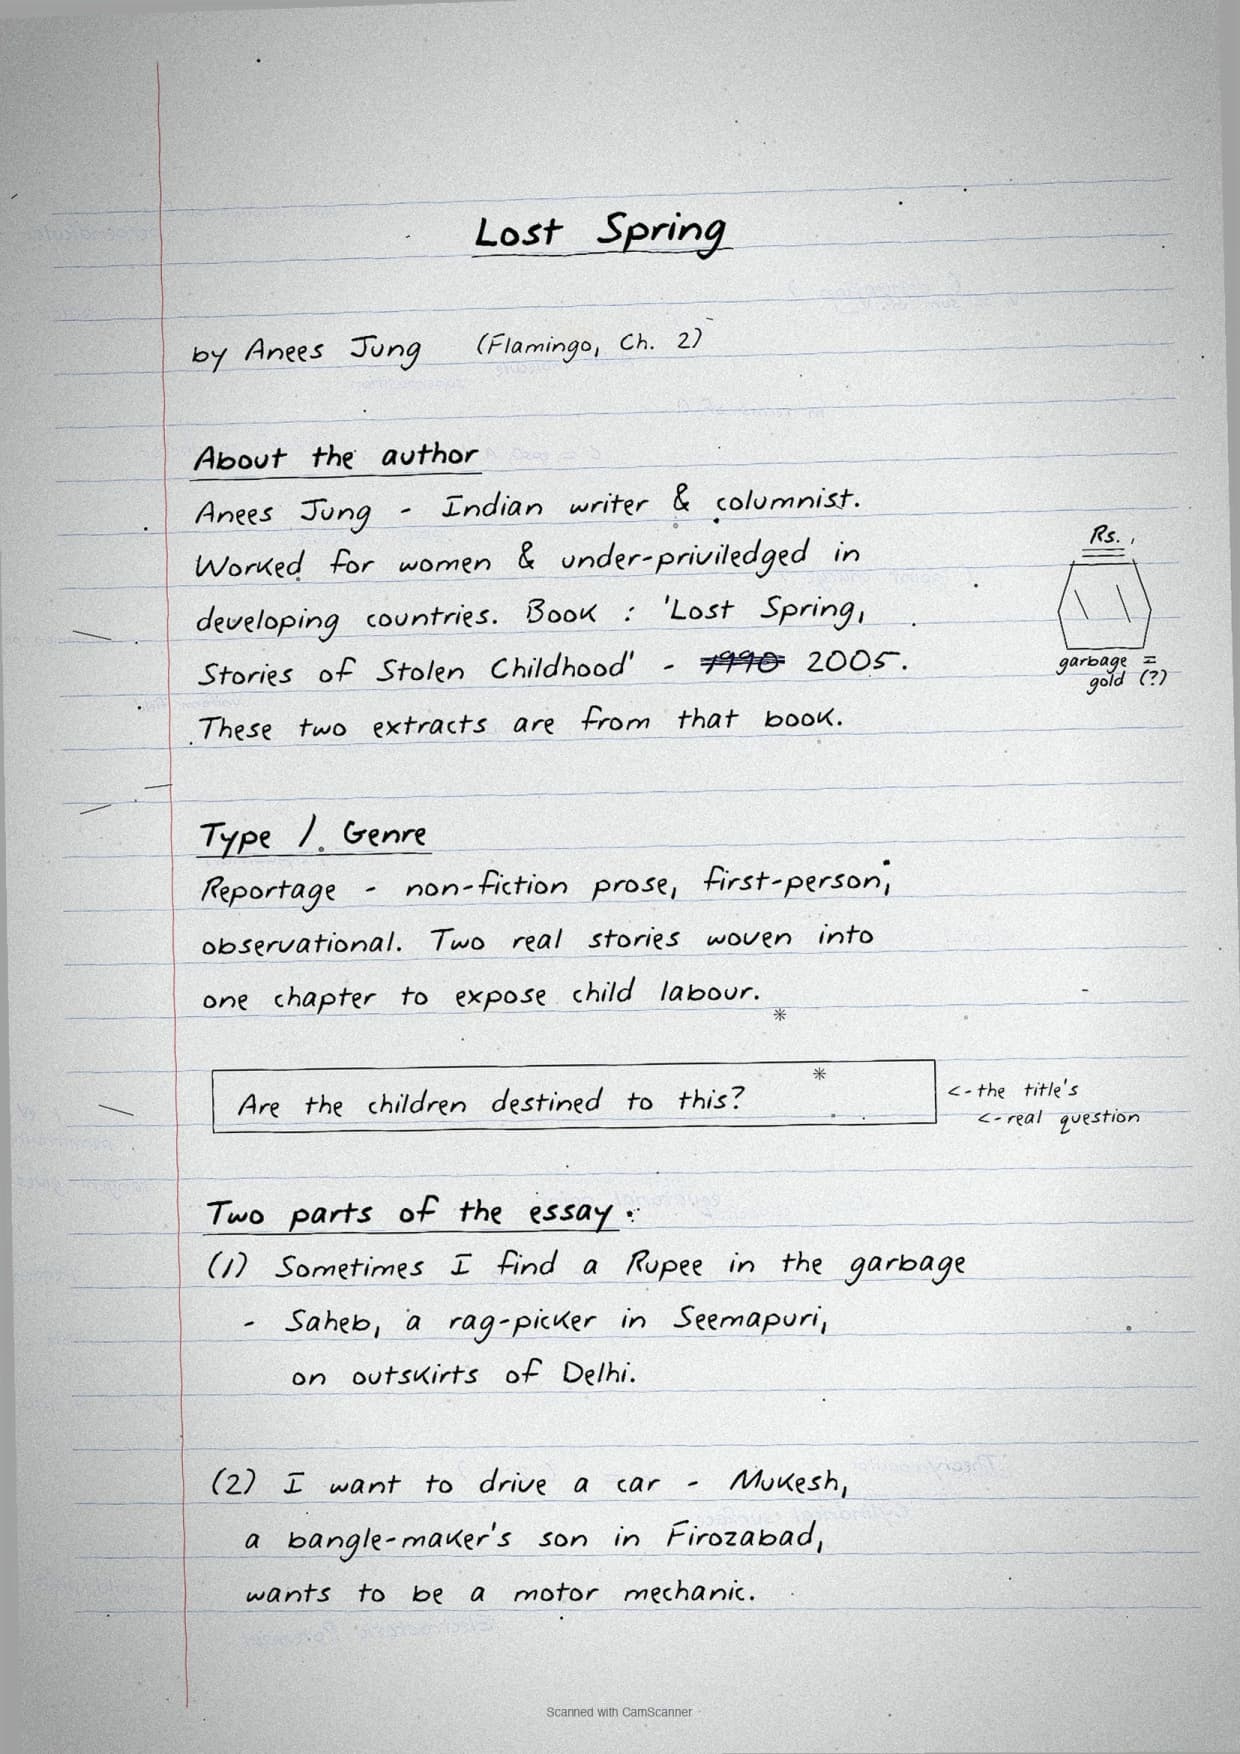 Lost Spring
by Anees Jung (Flamingo, Ch. 2)
About the author
Anees Jung - Indian writer & columnist.
Worked for women & under-priviledged in
developing countries. Book : 'Lost Spring,
Stories of Stolen Childhood' - 1990 2005.
These two extracts are from that book.
Rs.
garbage =
gold (?)
Type / Genre
Reportage - non-fiction prose, first-person,
observational. Two real stories woven into
one chapter to expose child labour.
*
Are the children destined to this? *
<- the title's
<- real question
Two parts of the essay :
(1) Sometimes I find a Rupee in the garbage
- Saheb, a rag-picker in Seemapuri,
on outskirts of Delhi.
(2) I want to drive a car - Mukesh,
a bangle-maker's son in Firozabad,
wants to be a motor mechanic.
Scanned with CamScanner